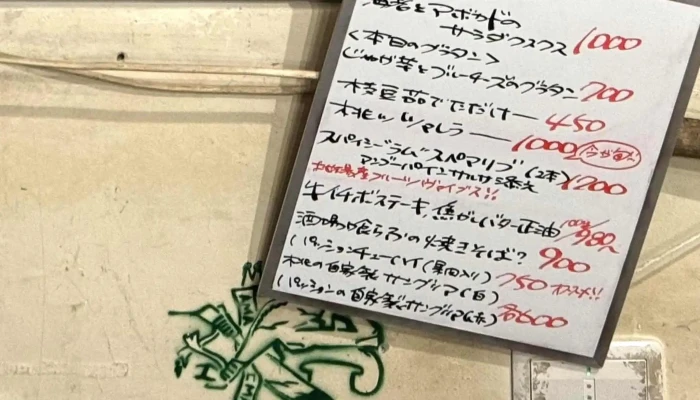 海老とアボカドの
サラダクスクス 1000
<本日のグラタン>
じゃが芋とブルーチーズのグラタン 700
枝豆茹でただけ― 450
桃とブッラータ
1000 今が旬!!
スパイシーラムスペアリブ (2本) 1200
マンゴーパインサルサ添え
フルーツ
牛イチボステーキ,焦がしバター正油 100g/980~
酒場喰らぶの焼きそば? 900
(パッションチューハイ(果肉入り) 750 オススメ!!
桃の自家製サングリア(白)
(パッションの自家製サングリア(赤) 各600